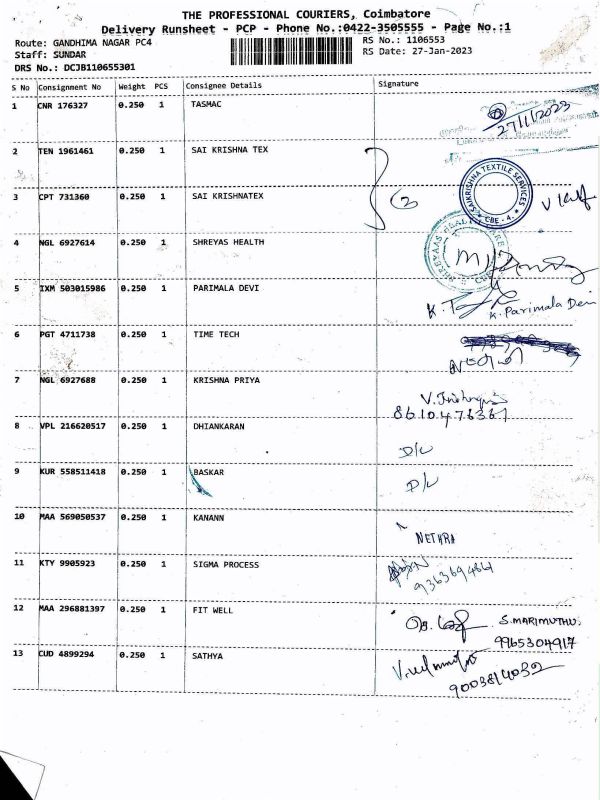 THE PROFESSIONAL COURIERS, Coimbatore
Delivery Runsheet - PCP - Phone No.:0422-3505555 - Page No.:1
Route: GANDHIMA NAGAR PC4
RS No.: 1106553
Staff: SUNDAR
RS Date: 27-Jan-2023
DRS No.: DCJB110655301
S No Consignment No Weight PCS Consignee Details Signature
1 CNR 176327 0.250 1 TASMAC
27/1/2023
2 TEN 1961461 0.250 1 SAI KRISHNA TEX
3 CPT 731360 0.250 1 SAI KRISHNATEX
SAKRISHNA TEXTILE SERVICES
CBE - 4.
4 NGL 6927614 0.250 1 SHREYAS HEALTH
5 IXM 503015986 0.250 1 PARIMALA DEVI
K. Parimala Devi
6 PGT 4711738 0.250 1 TIME TECH
7 NGL 6927688 0.250 1 KRISHNA PRIYA
8610476367
8 VPL 216620517 0.250 1 DHIANKARAN
D/L
9 KUR 558511418 0.250 1 BASKAR
D/L
10 MAA 569050537 0.250 1 KANANN
NETHRA
11 KTY 9905923 0.250 1 SIGMA PROCESS
12 MAA 296881397 0.250 1 FIT WELL
S. MARIMUTHU.
9965304917
13 CUD 4899294 0.250 1 SATHYA
9003814032